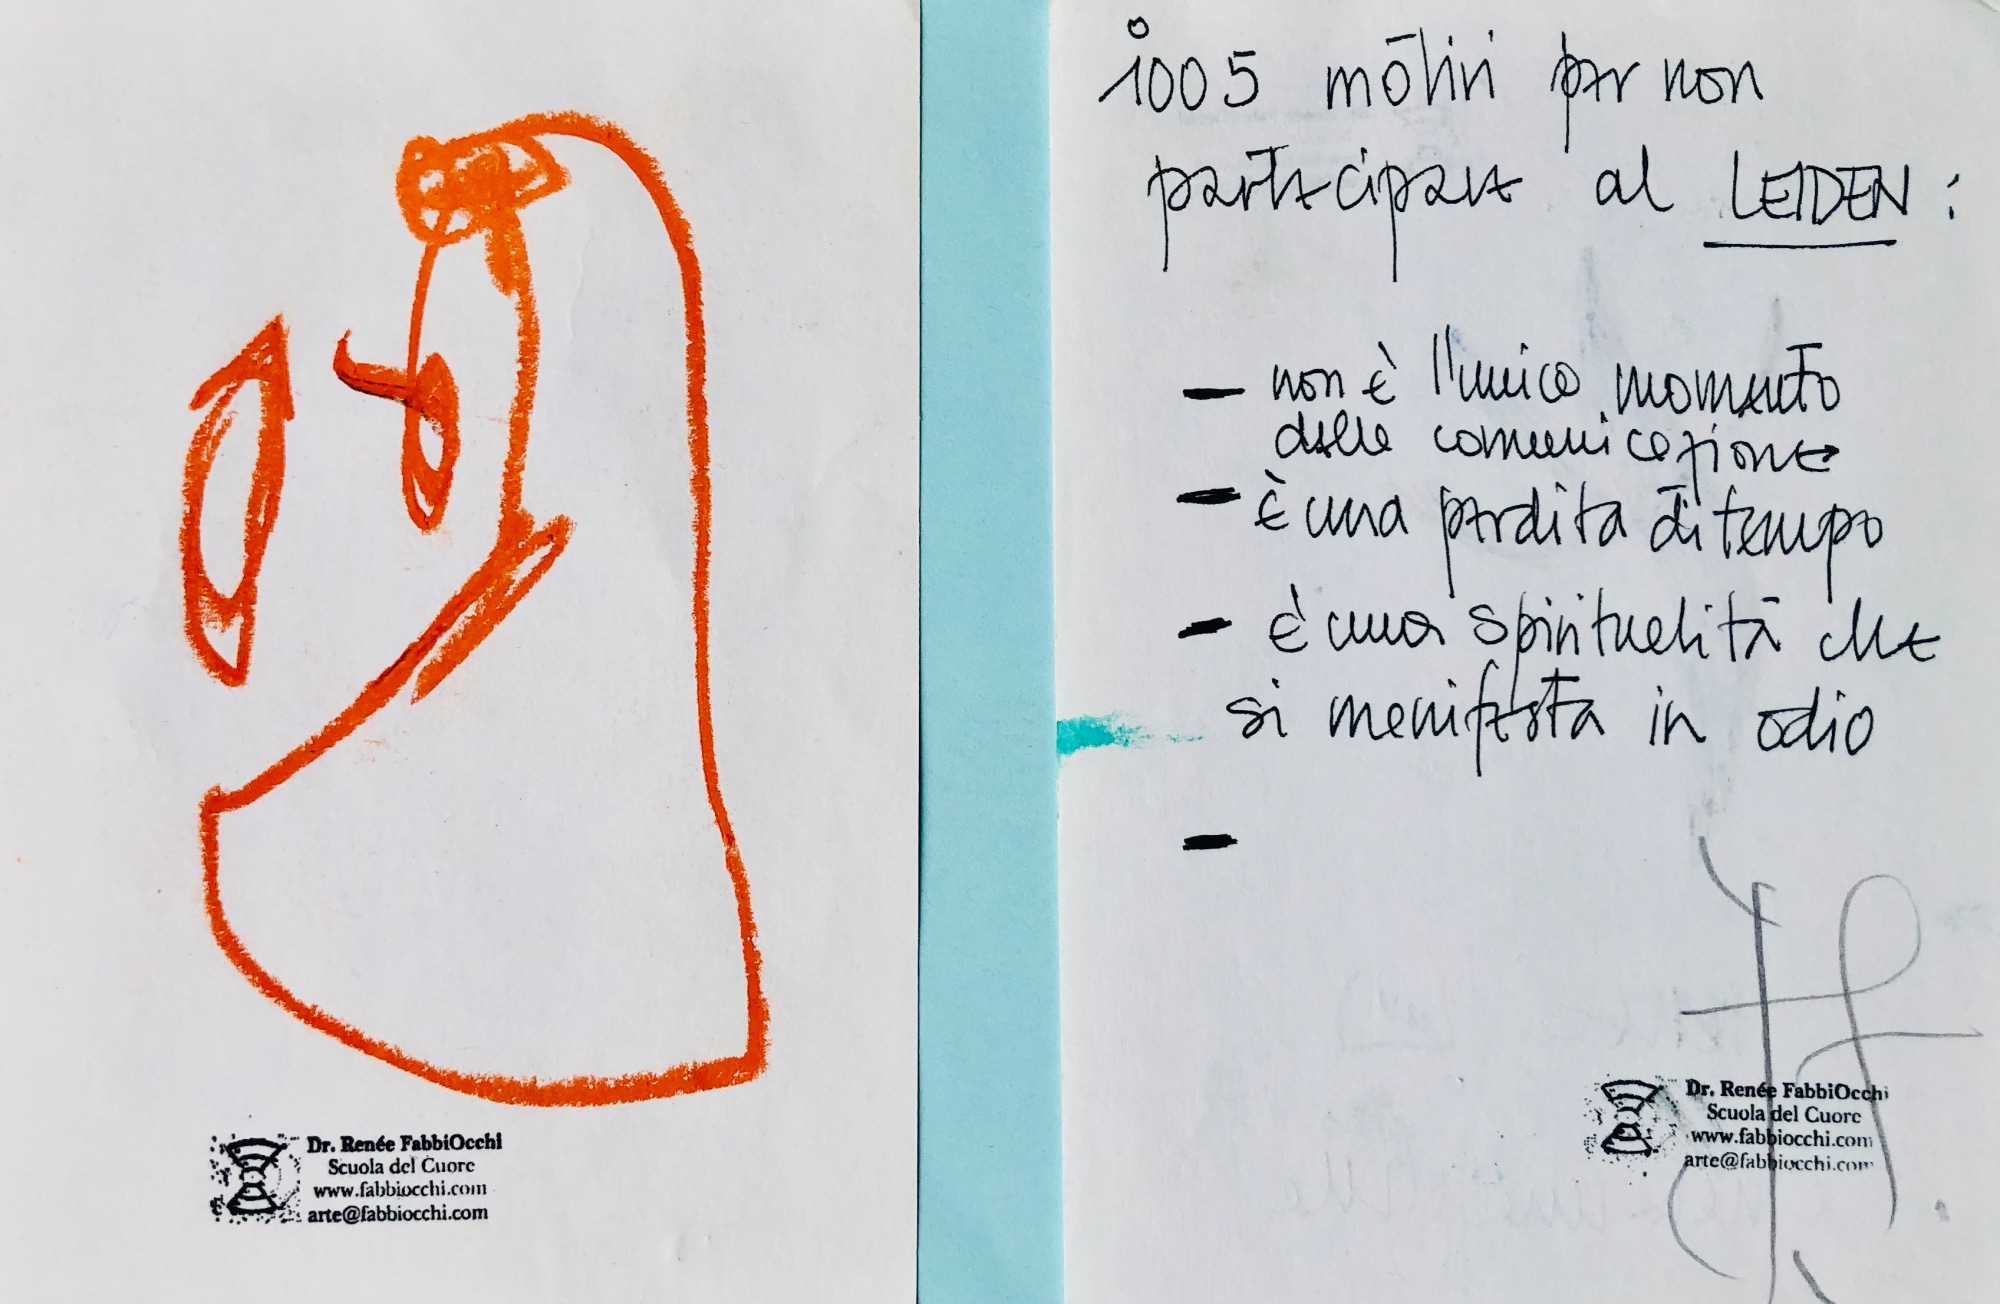 Dr. Renée FabbiOcchi
Scuola del Cuore
www.fabbiocchi.com
arte@fabbiocchi.com
1005 mōtivi per non
partecipare al LEIDEN :
– non è l'unico momento
della comunicazione
– È una perdita di tempo
– È una spiritualità che
si manifesta in odio
–
Dr. Renée FabbiOcchi
Scuola del Cuore
www.fabbiocchi.com
arte@fabbiocchi.com